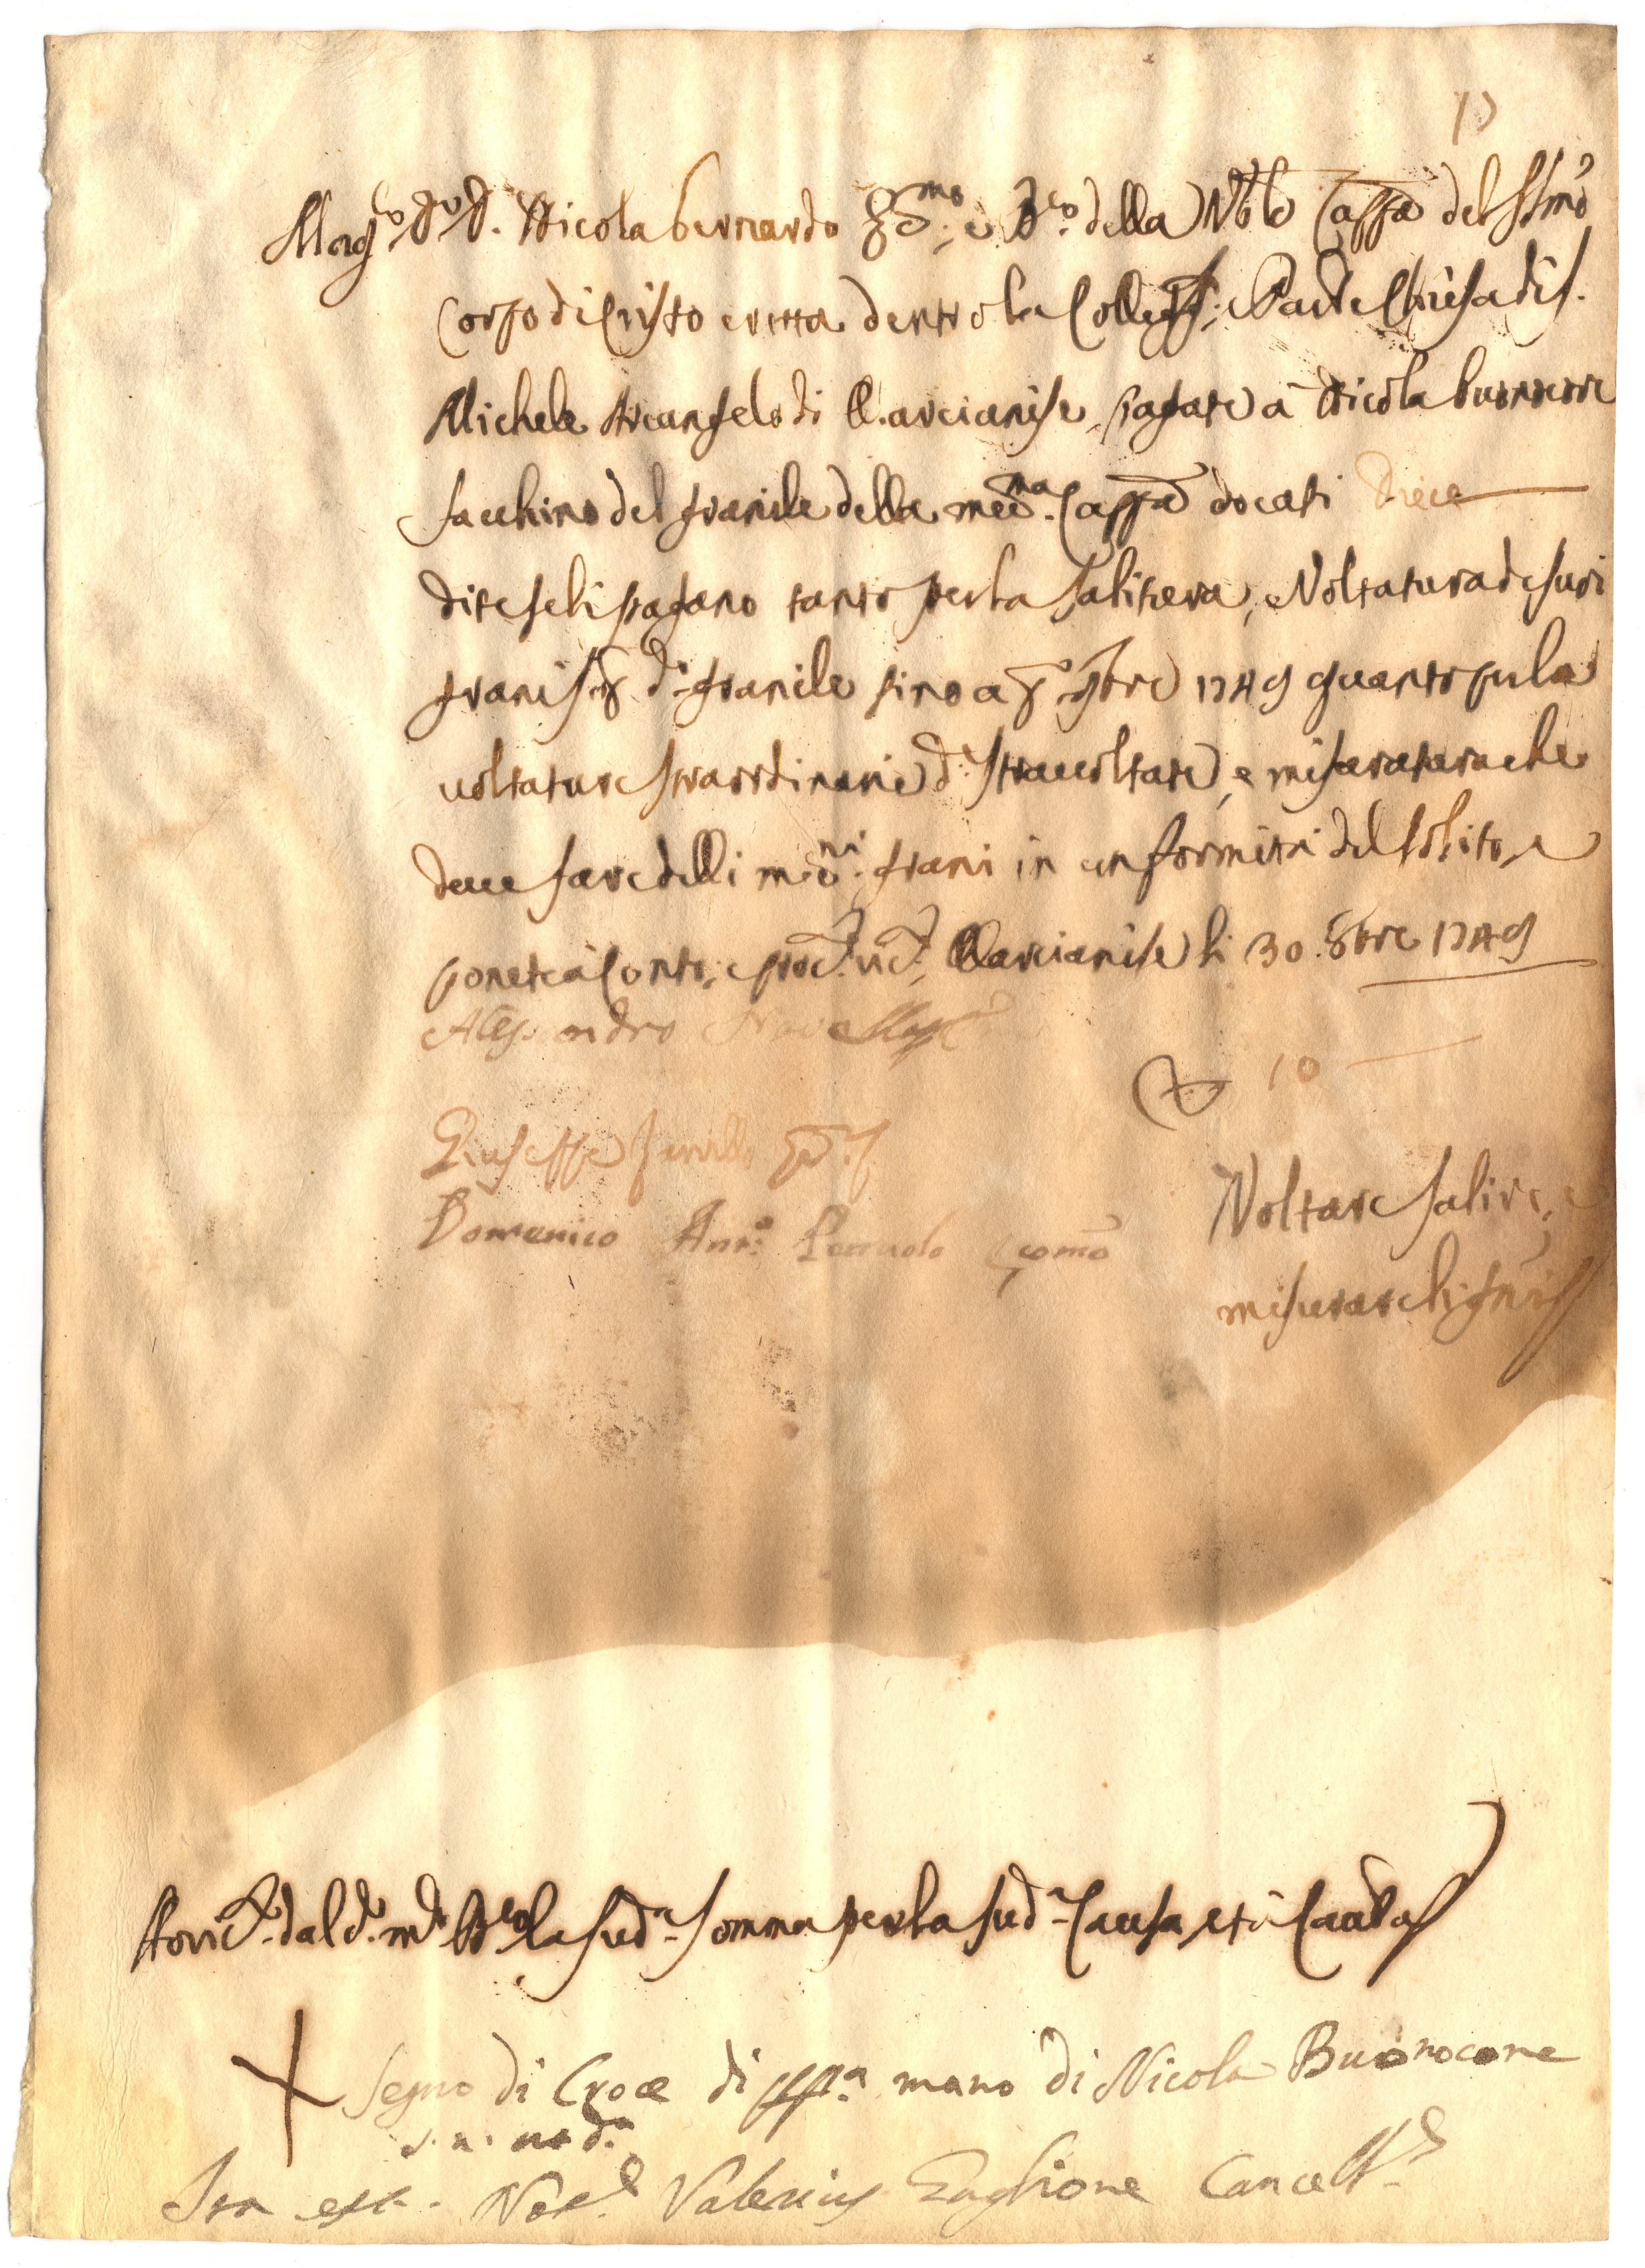 17
Mag.co Sr. D. Nicola bernardo e della Nle Cappa del SSmo
Corpo di Cristo eretta dentro la Colleg. Parle Chiesa di S.
Michele Arcangelo di Marcianise, pagate à Nicola buonocore
facchino del granile della med.ma Cappa docati Diece
dite seli pagano tanto per la salitura, e Voltatura de suoi
grani d.o granile sino a 9bre 1749 quanto per la
voltature straordinarie d. stravoltate, e misuratura che
deve fare delli med.ni grani in conformità del solito, e
ponete à Conto; Marcianise li 30. 8bre 1749
Alessandro Novelli
10
Giuseppe
Domenico Ant.o
Voltare salire, e
misurare li grani
Ho ric.to dal d.o m.co la sud.a somma per la sud.a Causa, et à Cautela
Segno di Croce di mano di Nicola Buonocore
Ita est. Not.s Valerius Taglione Cancell.s